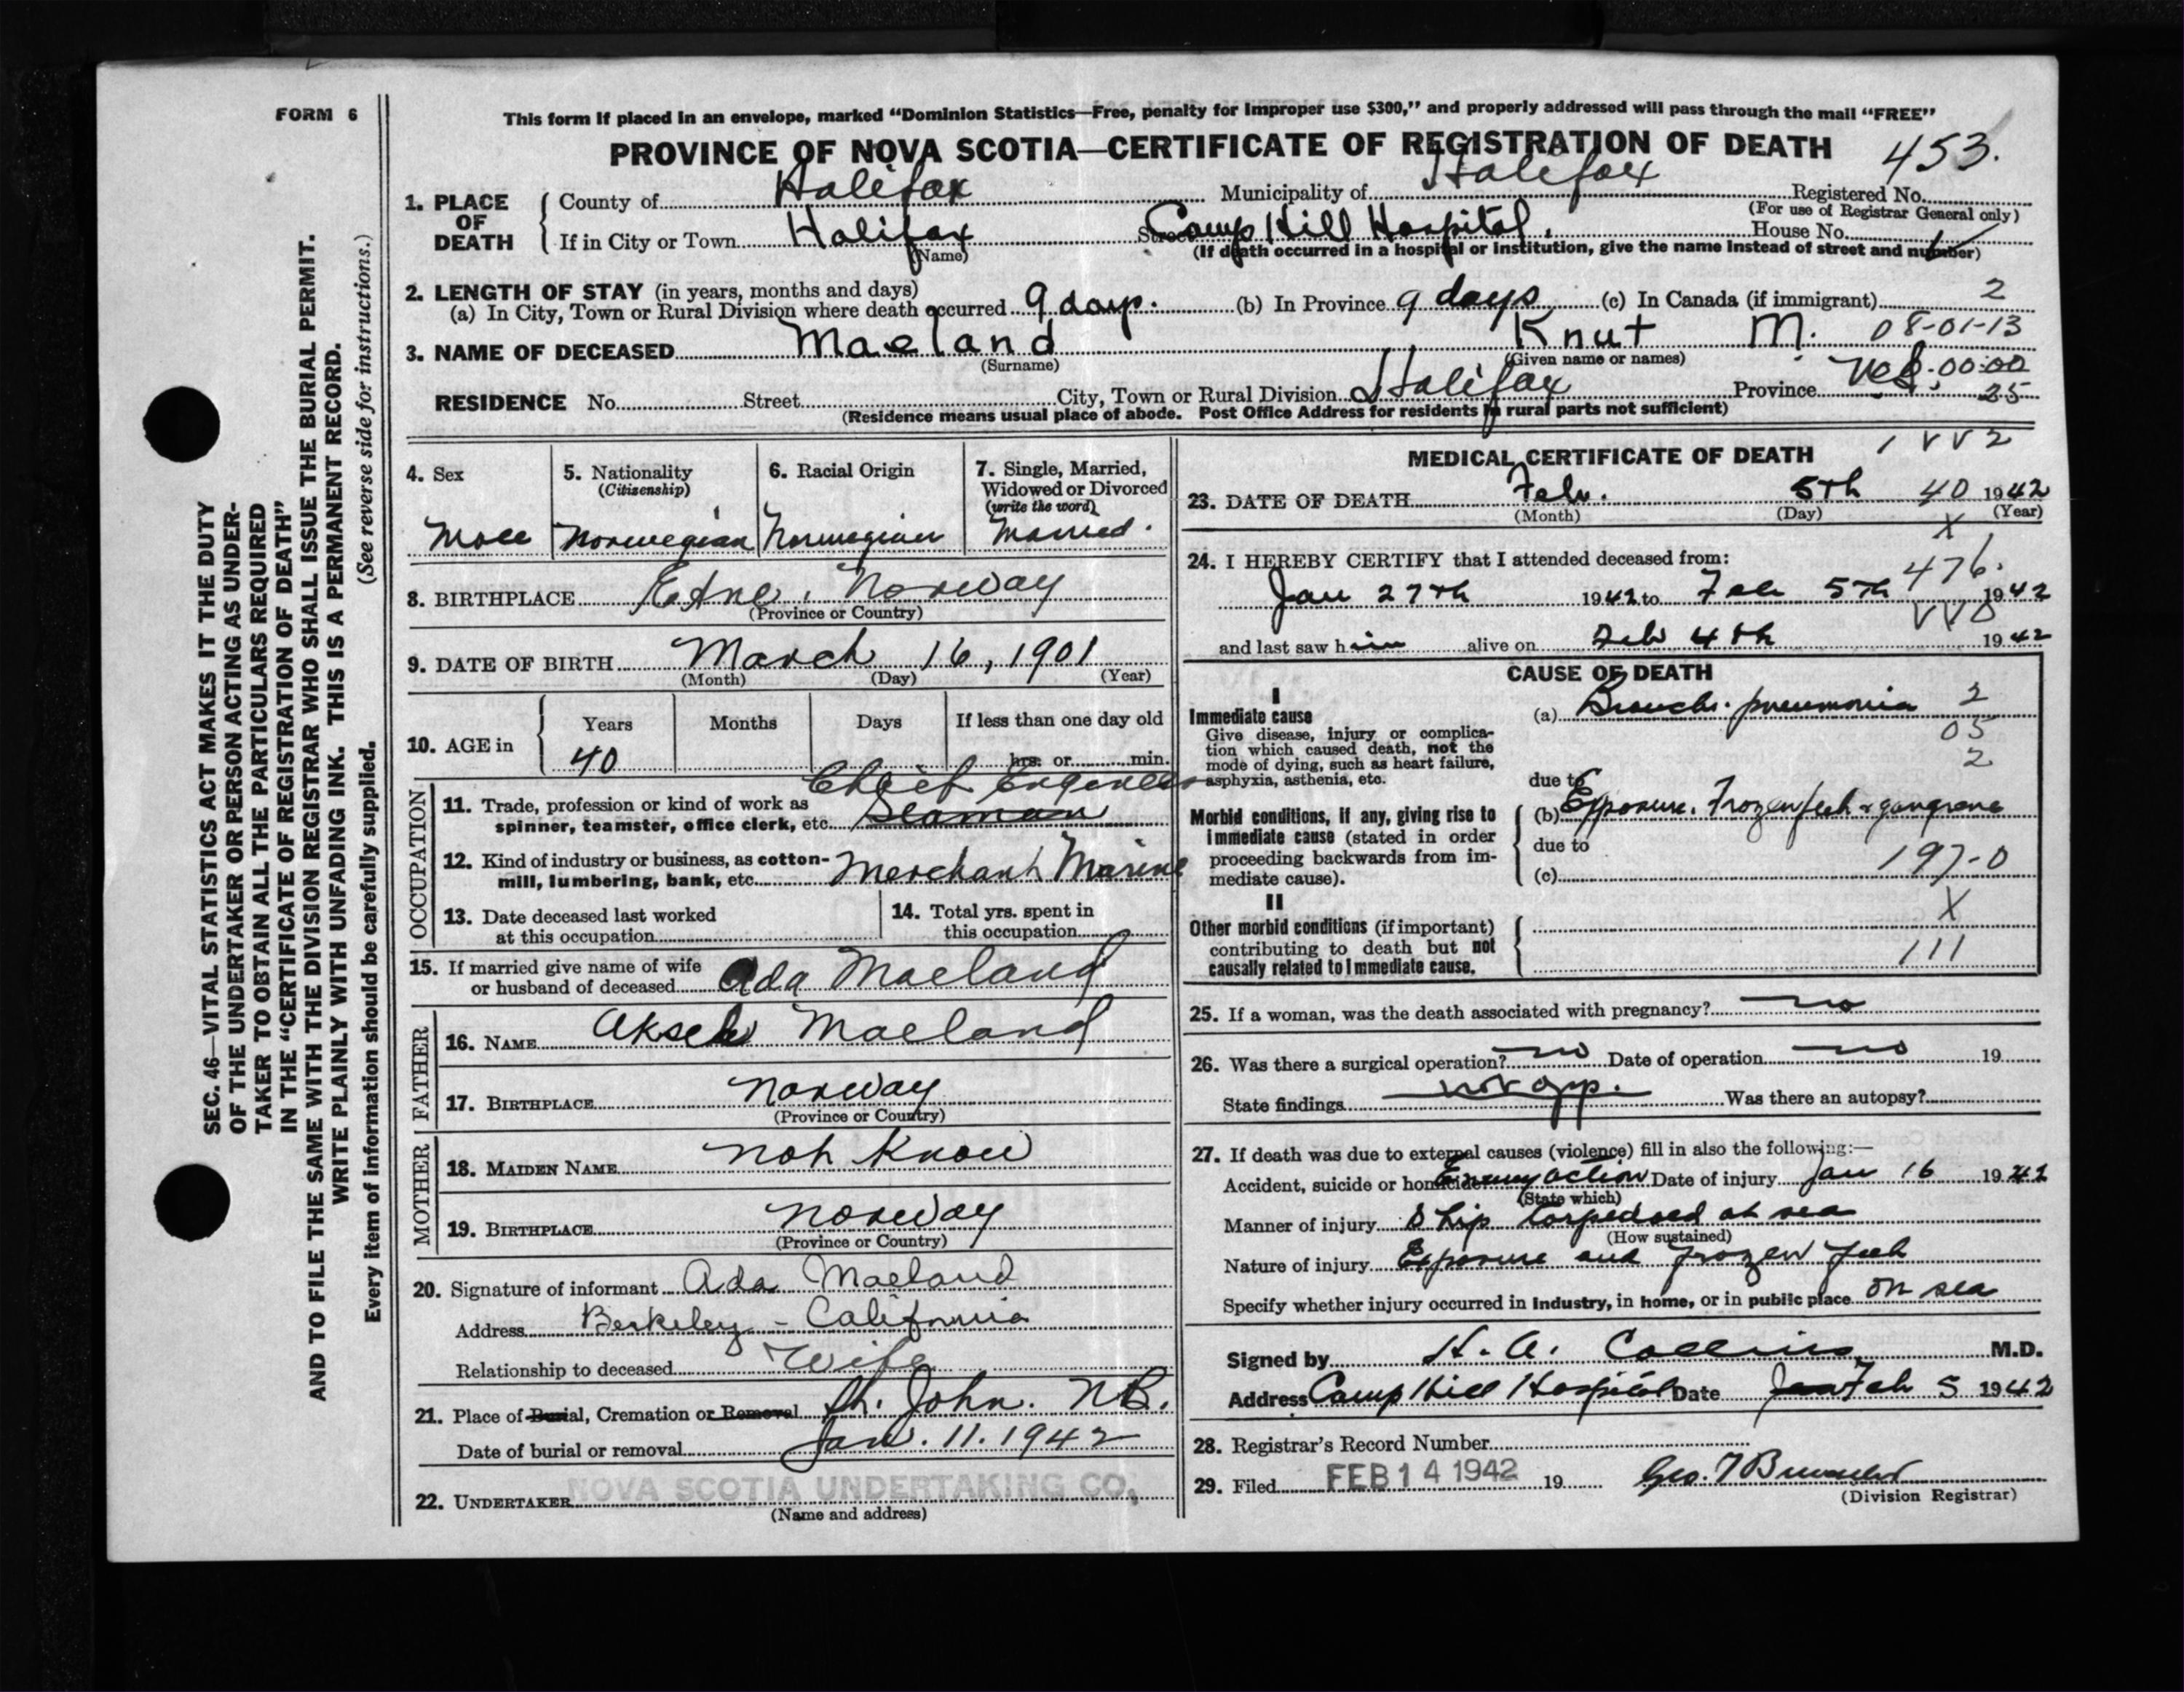 FORM 6
This form if placed in an envelope, marked “Dominion Statistics—Free, penalty for improper use $300,” and properly addressed will pass through the mail “FREE”
PROVINCE OF NOVA SCOTIA—CERTIFICATE OF REGISTRATION OF DEATH 453.
SEC. 46—VITAL STATISTICS ACT MAKES IT THE DUTY
OF THE UNDERTAKER OR PERSON ACTING AS UNDER-
TAKER TO OBTAIN ALL THE PARTICULARS REQUIRED
IN THE “CERTIFICATE OF REGISTRATION OF DEATH”
AND TO FILE THE SAME WITH THE DIVISION REGISTRAR WHO SHALL ISSUE THE BURIAL PERMIT.
WRITE PLAINLY WITH UNFADING INK. THIS IS A PERMANENT RECORD.
(See reverse side for instructions.)
Every item of information should be carefully supplied.
1. PLACE OF DEATH
County of Halifax Municipality of Halifax Registered No.
(For use of Registrar General only)
If in City or Town Halifax Street Camp Hill Hospital. House No.
(Name) (If death occurred in a hospital or institution, give the name instead of street and number)
2. LENGTH OF STAY (in years, months and days)
(a) In City, Town or Rural Division where death occurred 9 days. (b) In Province 9 days (c) In Canada (if immigrant) 2
3. NAME OF DECEASED Maeland Knut M. 08-01-13
(Surname) (Given name or names)
RESIDENCE No. Street City, Town or Rural Division Halifax Province 00:00
25
(Residence means usual place of abode. Post Office Address for residents in rural parts not sufficient)
4. Sex
Male
5. Nationality
(Citizenship)
Norwegian
6. Racial Origin
Norwegian
7. Single, Married,
Widowed or Divorced
(write the word)
Married.
8. BIRTHPLACE Etne, Norway
(Province or Country)
9. DATE OF BIRTH March 16, 1901
(Month) (Day) (Year)
10. AGE in
Years Months Days If less than one day old
40 hrs. or min.
OCCUPATION
Chief Engineer
11. Trade, profession or kind of work as
spinner, teamster, office clerk, etc. Seaman
12. Kind of industry or business, as cotton-
mill, lumbering, bank, etc. Merchant Marine
13. Date deceased last worked
at this occupation
14. Total yrs. spent in
this occupation
15. If married give name of wife
or husband of deceased Ada Maeland
FATHER
16. NAME Aksel Maeland
17. BIRTHPLACE Norway
(Province or Country)
MOTHER
18. MAIDEN NAME Not Know
19. BIRTHPLACE Norway
(Province or Country)
20. Signature of informant Ada Maeland
Address Berkeley - California
Relationship to deceased Wife
21. Place of Burial, Cremation or Removal St. John. N.B.
Date of burial or removal Jan. 11. 1942
22. UNDERTAKER NOVA SCOTIA UNDERTAKING CO.
(Name and address)
MEDICAL CERTIFICATE OF DEATH
23. DATE OF DEATH Feb. 5th 40 1942
(Month) (Day) (Year)
X
24. I HEREBY CERTIFY that I attended deceased from:
476.
Jan 27th 1942 to Feb 5th 1942
and last saw him alive on Feb 4th 1942
CAUSE OF DEATH
I
Immediate cause
Give disease, injury or complica-
tion which caused death, not the
mode of dying, such as heart failure,
asphyxia, asthenia, etc.
(a) Broncho. pneumonia 2
05
2
due to
Morbid conditions, if any, giving rise to
immediate cause (stated in order
proceeding backwards from im-
mediate cause).
(b) Exposure. Frozen feet & gangrene
due to
(c) 197-0
II
Other morbid conditions (if important)
contributing to death but not
causally related to immediate cause.
X
111
25. If a woman, was the death associated with pregnancy? no
26. Was there a surgical operation? no Date of operation no 19
State findings not app. Was there an autopsy?
27. If death was due to external causes (violence) fill in also the following:—
Accident, suicide or homicide Enemy action Date of injury Jan 16 1942
(State which)
Manner of injury Ship torpedoed at sea
(How sustained)
Nature of injury Exposure and frozen feet
Specify whether injury occurred in industry, in home, or in public place on sea
Signed by H. A. Collins M.D.
Address Camp Hill Hospital Date Jan Feb 5 1942
28. Registrar's Record Number
29. Filed FEB 14 1942 19
(Division Registrar)